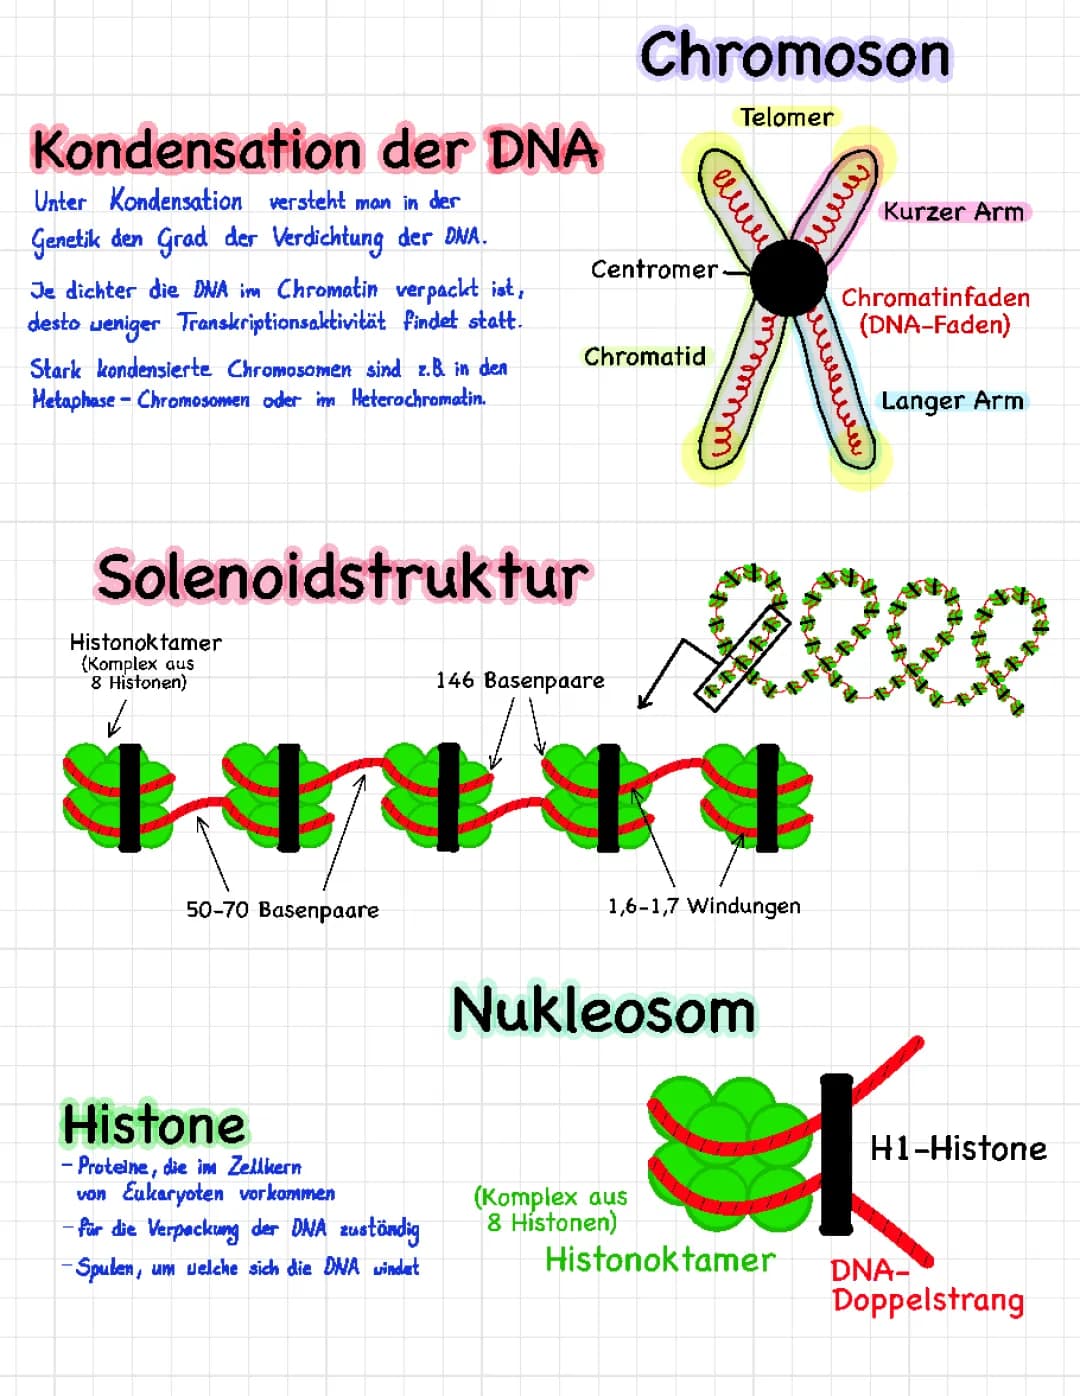 Chromoson
Telomer
Kondensation der DNA
Unter Kondensation versteht man in der
Genetik den Grad der Verdichtung der DNA.
Je dichter die DNA im Chromatin verpackt ist,
desto weniger Transkriptionsaktivität findet statt.
Stark kondensierte Chromosomen sind z.B. in den
Metaphase-Chromosomen oder im Heterochromatin.
Kurzer Arm
Centromer
Chromatinfaden
(DNA-Faden)
Chromatid
Langer Arm
Solenoidstruktur
Histonoktamer
(Komplex aus
8 Histonen)
146 Basenpaare
50-70 Basenpaare
1,6-1,7 Windungen
Nukleosom
Histone
- Proteine, die im Zellkern
von Eukaryoten vorkommen
- für die Verpackung der DNA zuständig
- Spulen, um welche sich die DNA windet
H1-Histone
(Komplex aus
8 Histonen)
Histonoktamer
DNA-
Doppelstrang